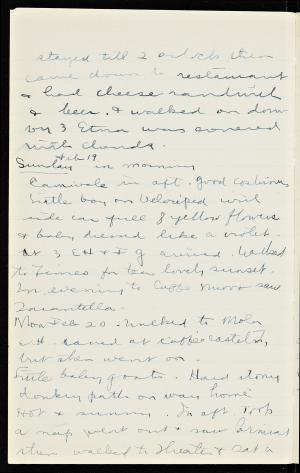 stayed till 2 o'clock then
came down to restaurant
& had cheese sandwich
& beer. & walked on down
by 3 Etna was covered
with clouds.
Sunday Feb 19. in morning
Carnivale in aft. good costumes
little boy on Velocipede with
side car full of yellow flowers
& baby dressed like a violet.
At 3 EH & F G arrived. Walked
to Timeo for tea lovely sunset.
In evening to Caffe Nuovo saw
Tarantella.
Mon Feb 20. Walked to Mola
E.H. at Caffe Castello,
but then went on.
Little baby goats. Hard stony
donkey paths on way home
Hot & sunny. In aft. took
a nap went out & saw
then walked to Theatre & sat a